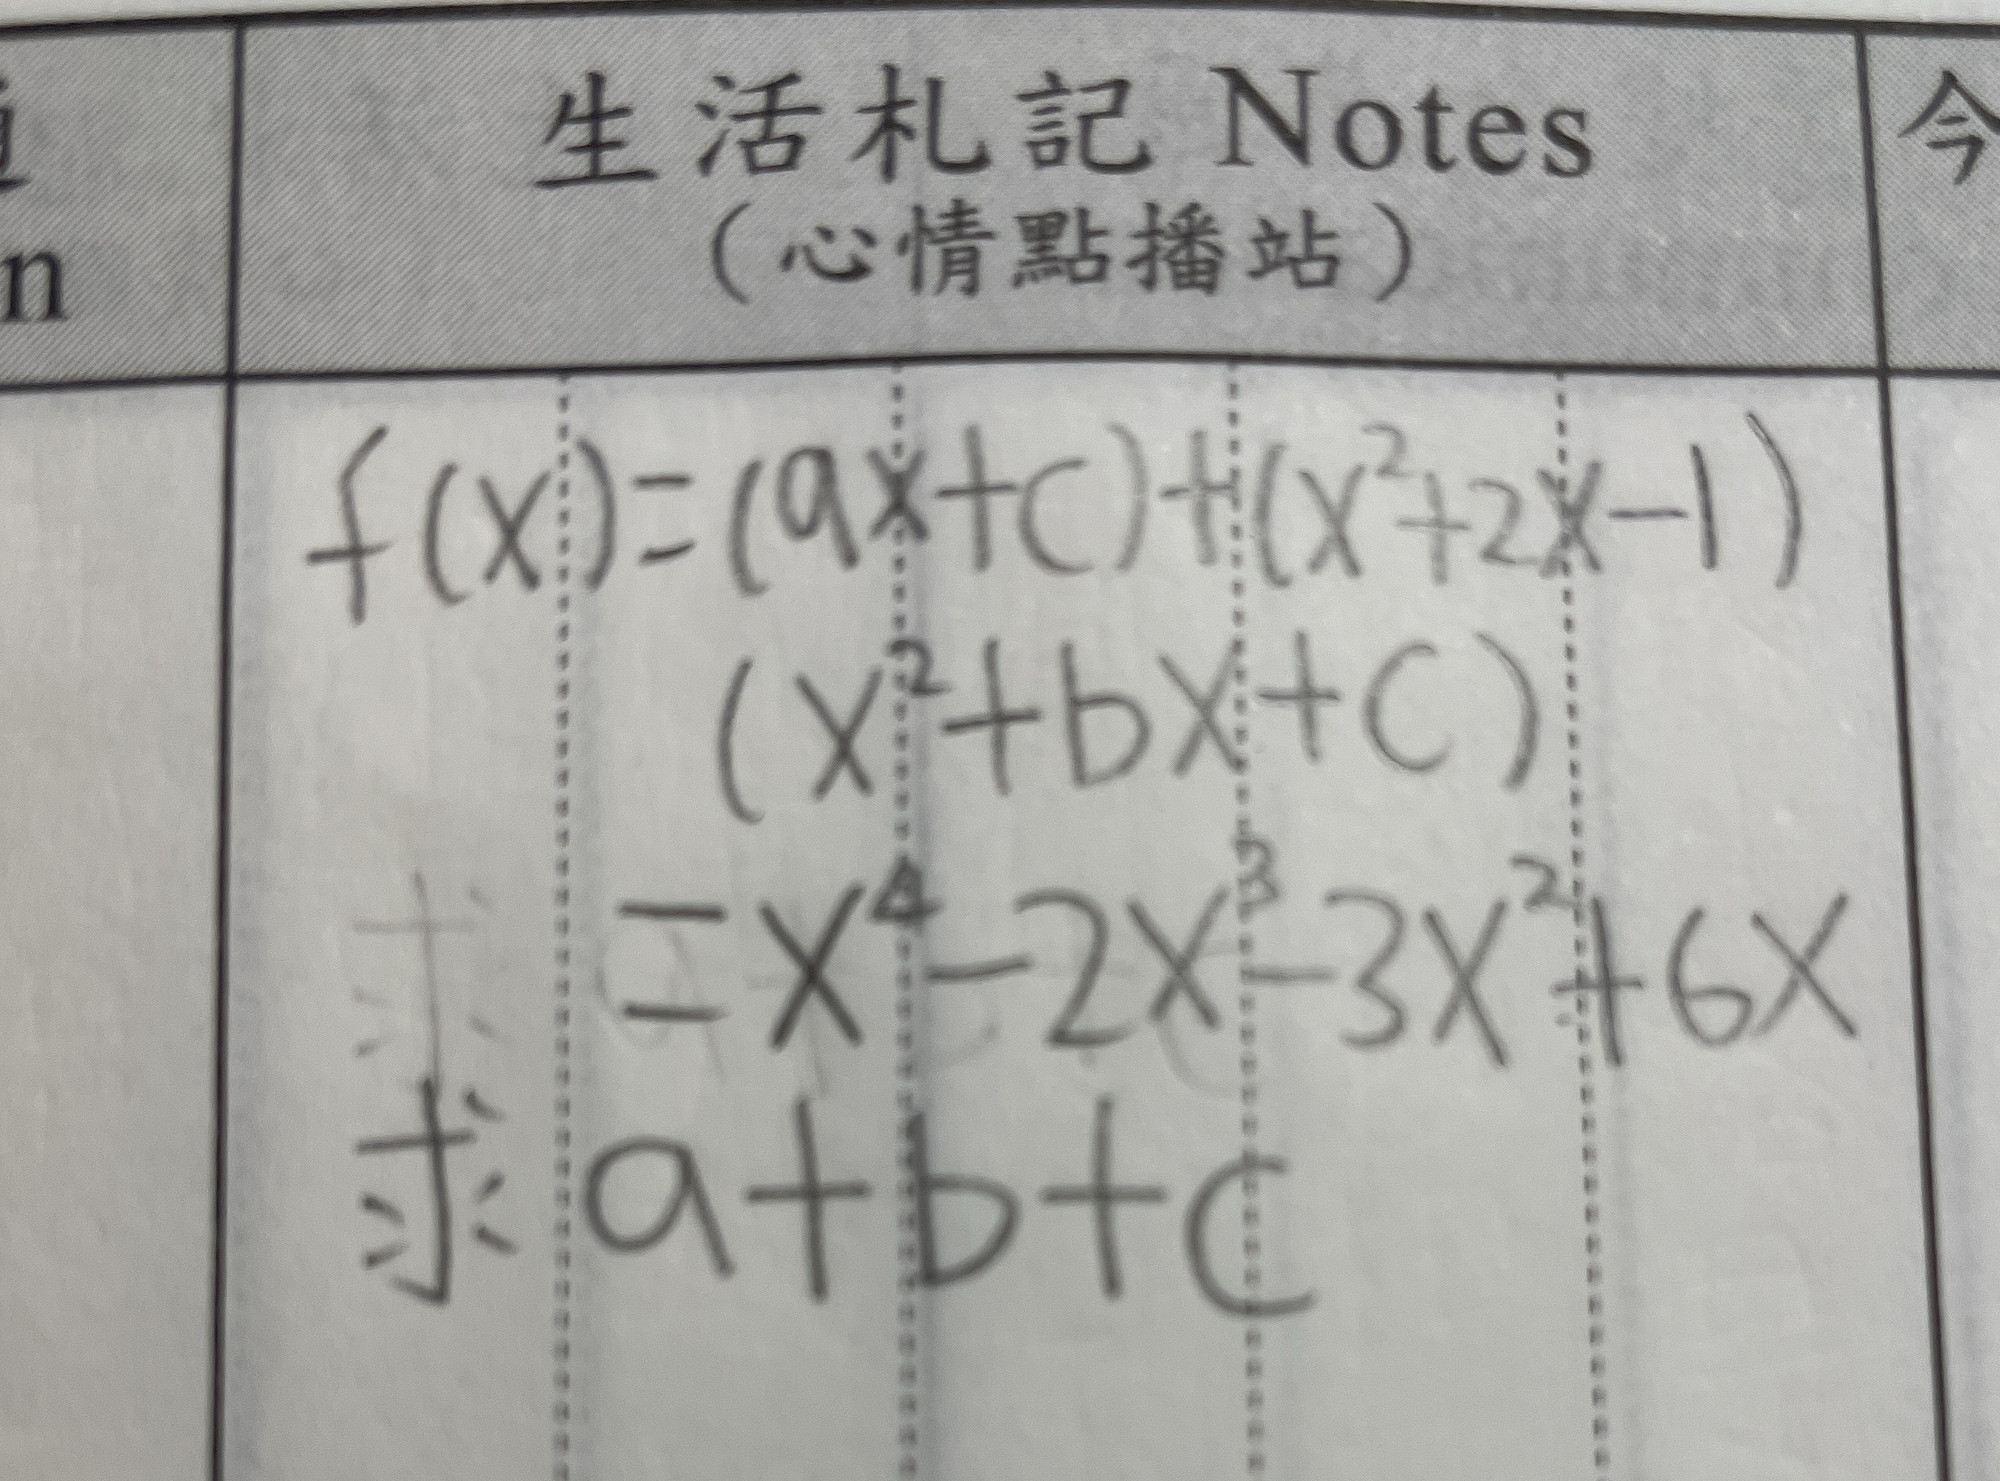 生活札記 Notes
(心情點播站)
n
今
f(x)=(ax+c)+(x²+2x-1)
(x²+bx+c)
=x⁴-2x³-3x²+6x
求a+b+c